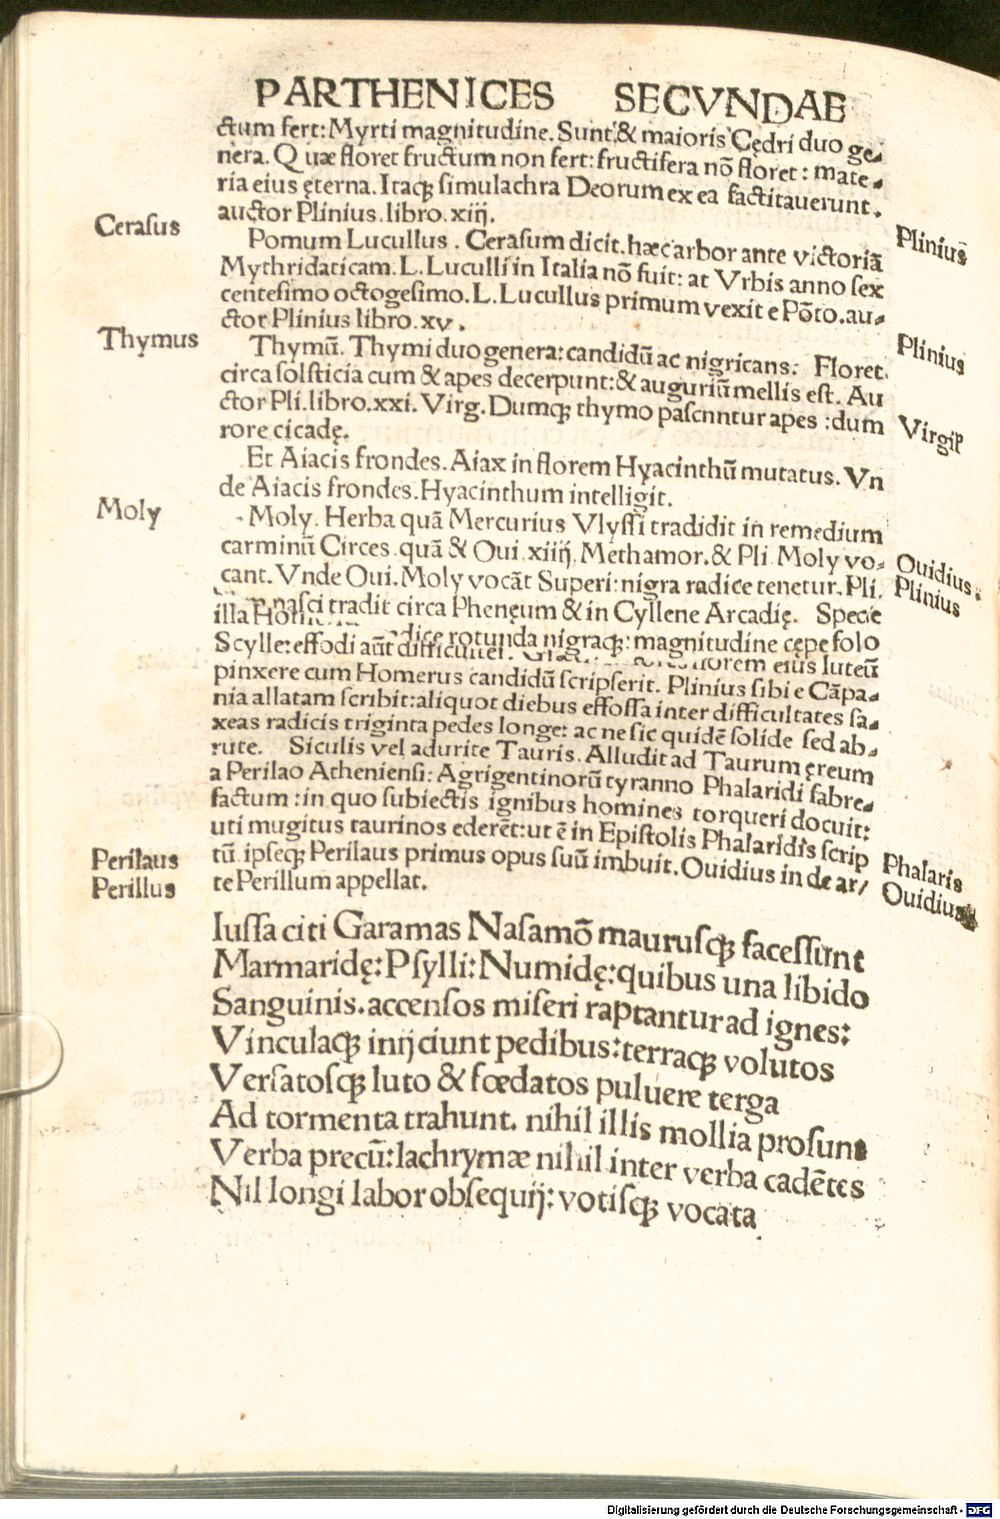 PARTHENICES SECVNDAE
ctum fert: Myrti magnitudine. Sunt & maioris Cędri duo ge-
nera. Quæ floret fructum non fert: fructifera nō floret: mate-
ria eius ęterna. Itaqꝫ simulachra Deorum ex ea factitauerunt.
auctor Plinius. libro. xiij.
Cerasus
Pliniꝰ
Pomum Lucullus. Cerasum dicit. hæc arbor ante victoriā
Mythridaticam. L. Luculli in Italia nō fuit: at Vrbis anno sex
centesimo octogesimo. L. Lucullus primum vexit e Pōto. au-
ctor Plinius libro. xv.
Thymus
Plinius
Thymū. Thymi duo genera: candidū ac nigricans: Floret
circa solsticia cum & apes decerpunt: & auguriū mellis est. Au
ctor Pli. libro. xxi. Virg. Dumqꝫ thymo pascnntur apes: dum
rore cicadę.
Virgil
Et Aiacis frondes. Aiax in florem Hyacinthū mutatus. Vn
de Aiacis frondes. Hyacinthum intelligit.
Moly
Moly. Herba quā Mercurius Vlyssi tradidit in remedium
carminū Circes. quā & Oui. xiiij. Methamor. & Pli. Moly vo-
cant. Vnde Oui. Moly vocāt Superi: nigra radice tenetur. Pli.
Ouidius.
Plinius
illa nasci tradit circa Pheneum & in Cyllene Arcadię. Specie
dice rotunda nigraqꝫ: magnitudine cępe folo
Scylle: effodi aūt florem eius luteū
pinxere cum Homerus candidū scripserit. Plinius sibi e Cāpa-
nia allatam scribit: aliquot diebus effossa inter difficultates sa-
xeas radicis triginta pedes longe: ac ne sic quidē solide sed ab-
rute. Siculis vel adurite Tauris. Alludit ad Taurum ęreum
a Perilao Atheniensi: Agrigentinorū tyranno Phalaridi fabre-
factum: in quo subiectis ignibus homines torqueri docuit:
uti mugitus taurinos ederēt: ut ē in Epistolis Phalaridis scrip
tū. ipseqꝫ Perilaus primus opus suū imbuit. Ouidius in de ar/
te Perillum appellat.
Perilaus
Perillus
Phalaris
Ouidius
Iussa citi Garamas Nasamō maurusqꝫ facessunt
Marmaridę: Psylli: Numidę: quibus una libido
Sanguinis. accensos miseri raptantur ad ignes:
Vinculaqꝫ inijciunt pedibus: terraqꝫ volutos
Versatosqꝫ luto & fœdatos puluere terga
Ad tormenta trahunt. nihil illis mollia prosunt
Verba precū: lachrymæ nihil inter verba cadētes
Nil longi labor obsequij: votisqꝫ vocata
Digitalisierung gefördert durch die Deutsche Forschungsgemeinschaft - DFG